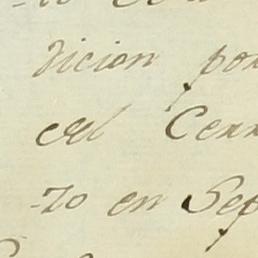 dicion por
del Cerr
-zo en Sep